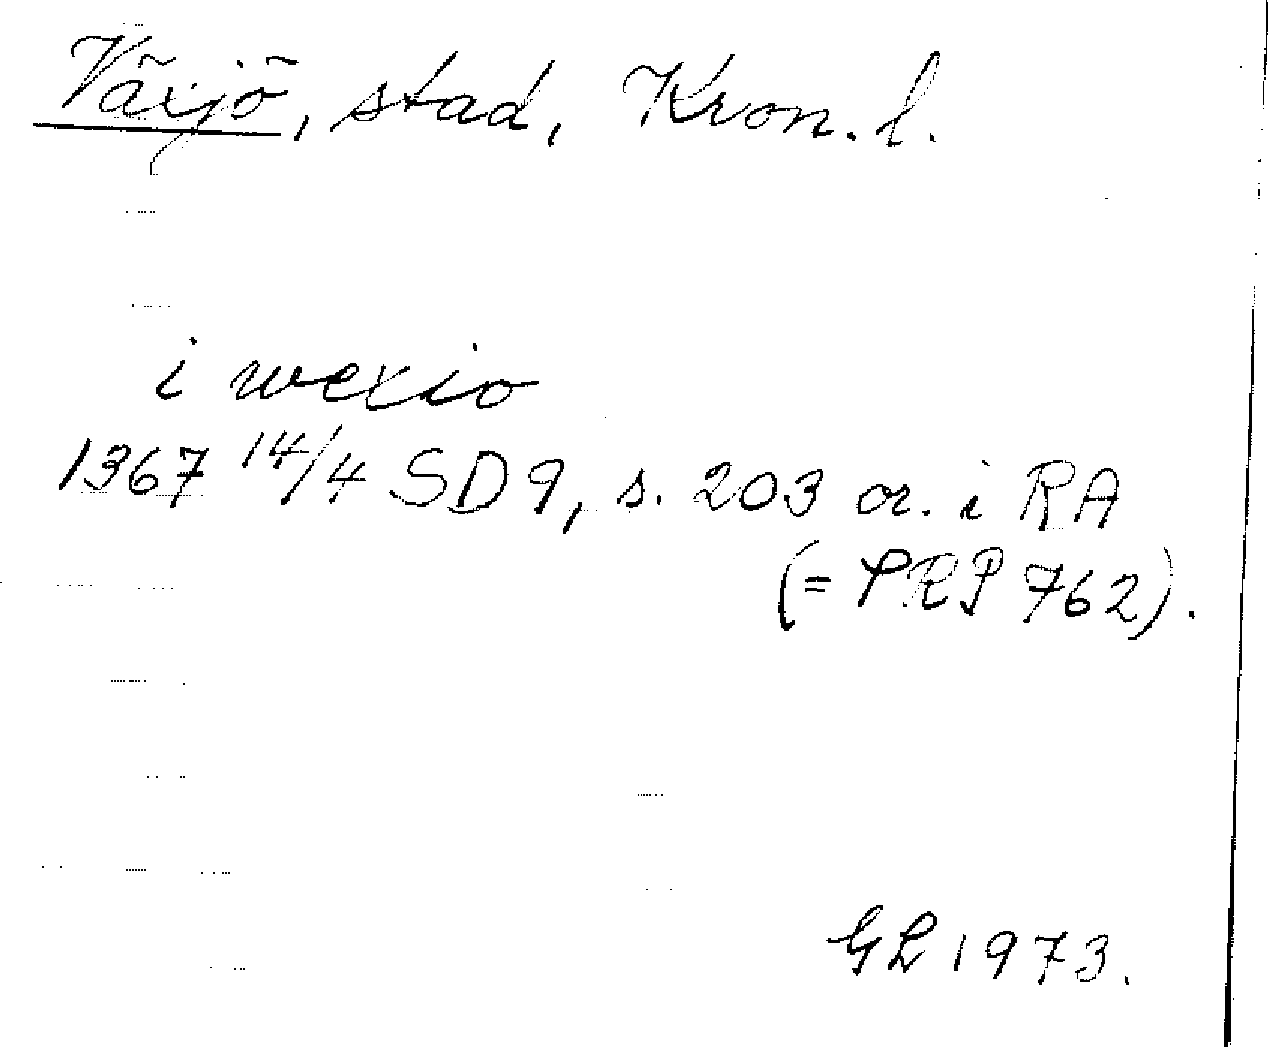 Växjö, stad, Kron. l.
i wexio
1367 14/4 SD 9, s. 203 or. i RA
(= PRP 762).
GL 1973.